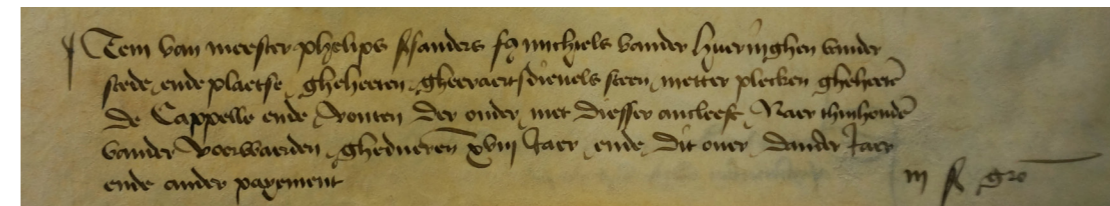 Item van meester phelips ssanders fs michiels vander hueringhen vander
stede ende plaetse gheheeten gheeraert sduuels steen metter plecken gheheetē
de Cappelle ende vouten der onder met diesser ancleeft Naer thinhoudē
vander voorwaerden ghedueren xviij Jaer ende dit ouer dander Jaer
ende ander payement iij s gro